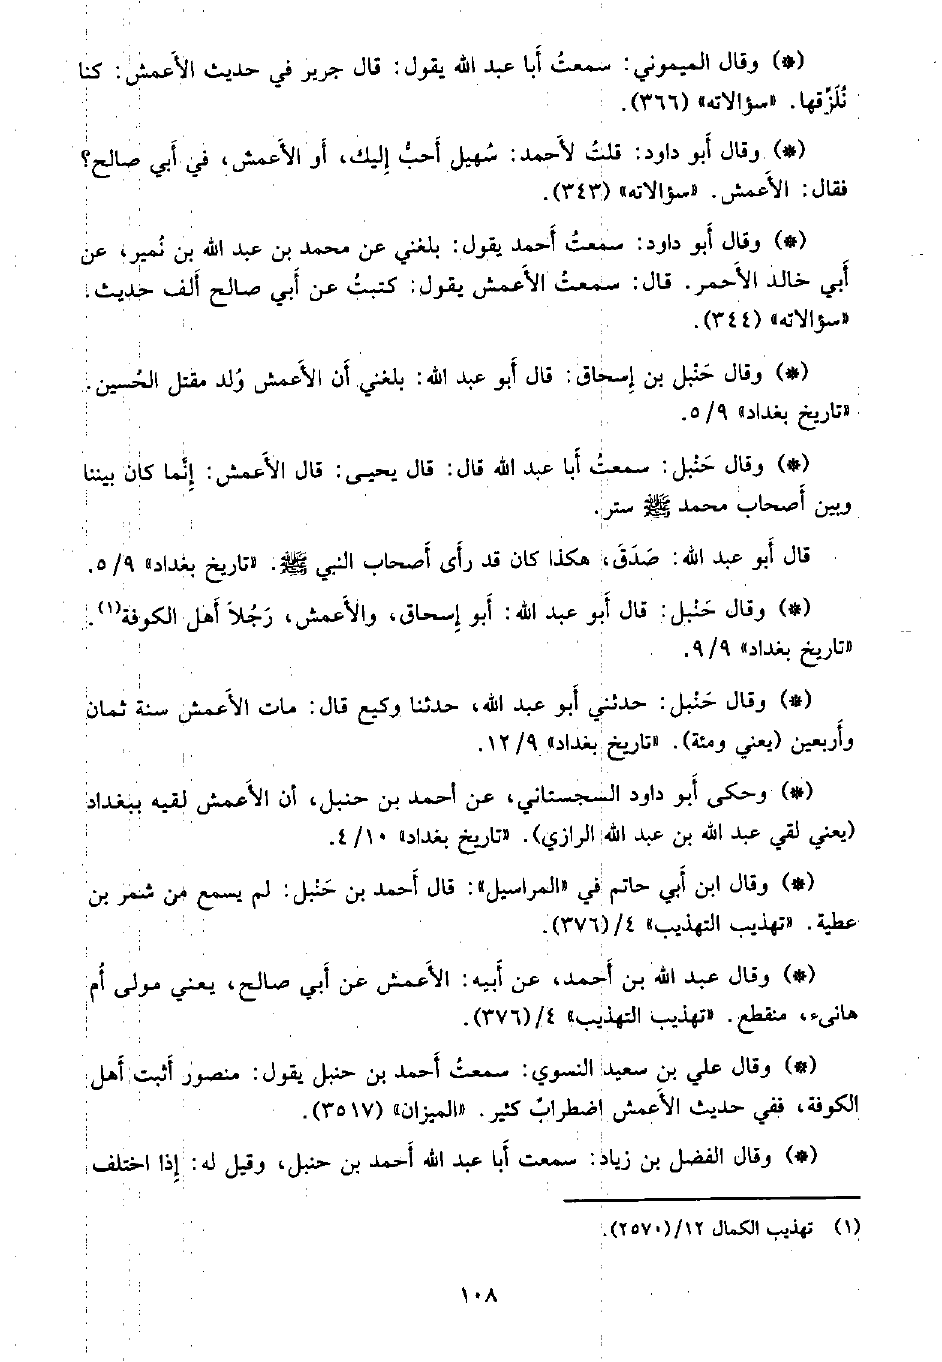 (*) وقال الميموني: سمعتُ أَبا عبد الله يقول: قال جرير في حديث الأَعمش: كنا
نُلَزِّقها. «سؤالاته» (٣٦٦).
(*) وقال أَبو داود: قلتُ لأَحمد: سُهيل أَحبُّ إِليك، أَو الأَعمش، في أَبي صالح؟
فقال: الأَعمش. «سؤالاته» (٣٤٣).
(*) وقال أَبو داود: سمعتُ أَحمد يقول: بلغني عن محمد بن عبد الله بن نُمير، عن
أَبي خالد الأَحمر. قال: سمعتُ الأَعمش يقول: كتبتُ عن أَبي صالح أَلف حديث.
«سؤالاته» (٣٤٤).
(*) وقال حَنْبل بن إِسحاق: قال أَبو عبد الله: بلغني أَن الأَعمش وُلد مقتل الحُسين.
«تاريخ بغداد» ٥/٩.
(*) وقال حَنْبل: سمعتُ أَبا عبد الله قال: قال يحيى: قال الأَعمش: إِنَّما كان بيننا
وبين أَصحاب محمد ﷺ ستر.
قال أَبو عبد الله: صَدَقَ، هكذا كان قد رأَى أَصحاب النبي ﷺ. «تاريخ بغداد» ٥/٩.
(*) وقال حَنْبل: قال أَبو عبد الله: أَبو إِسحاق، والأَعمش، رَجُلاَ أَهل الكوفة(١).
«تاريخ بغداد» ٩/٩.
(*) وقال حَنْبل: حدثني أَبو عبد الله، حدثنا وكيع قال: مات الأَعمش سنة ثمان
وأَربعين (يعني ومئة). «تاريخ بغداد» ١٢/٩.
(*) وحكى أَبو داود السجستاني، عن أحمد بن حنبل، أن الأَعمش لقيه ببغداد
(يعني لقي عبد الله بن عبد الله الرازي). «تاريخ بغداد» ٤/١٠.
(*) وقال ابن أَبي حاتم في «المراسيل»: قال أَحمد بن حَنْبل: لم يسمع من شمر بن
عطية. «تهذيب التهذيب» ٤/(٣٧٦).
(*) وقال عبد الله بن أَحمد، عن أَبيه: الأَعمش عن أَبي صالح، يعني مولى أُم
هانىء، منقطع. «تهذيب التهذيب» ٤/(٣٧٦).
(*) وقال علي بن سعيد النسوي: سمعتُ أَحمد بن حنبل يقول: منصور أَثبت أَهل
الكوفة، ففي حديث الأَعمش اضطرابٌ كثير. «الميزان» (٣٥١٧).
(*) وقال الفضل بن زياد: سمعت أَبا عبد الله أَحمد بن حنبل، وقيل له: إِذا اختلف
(١) تهذيب الكمال ١٢/(٢٥٧٠).
١٠٨